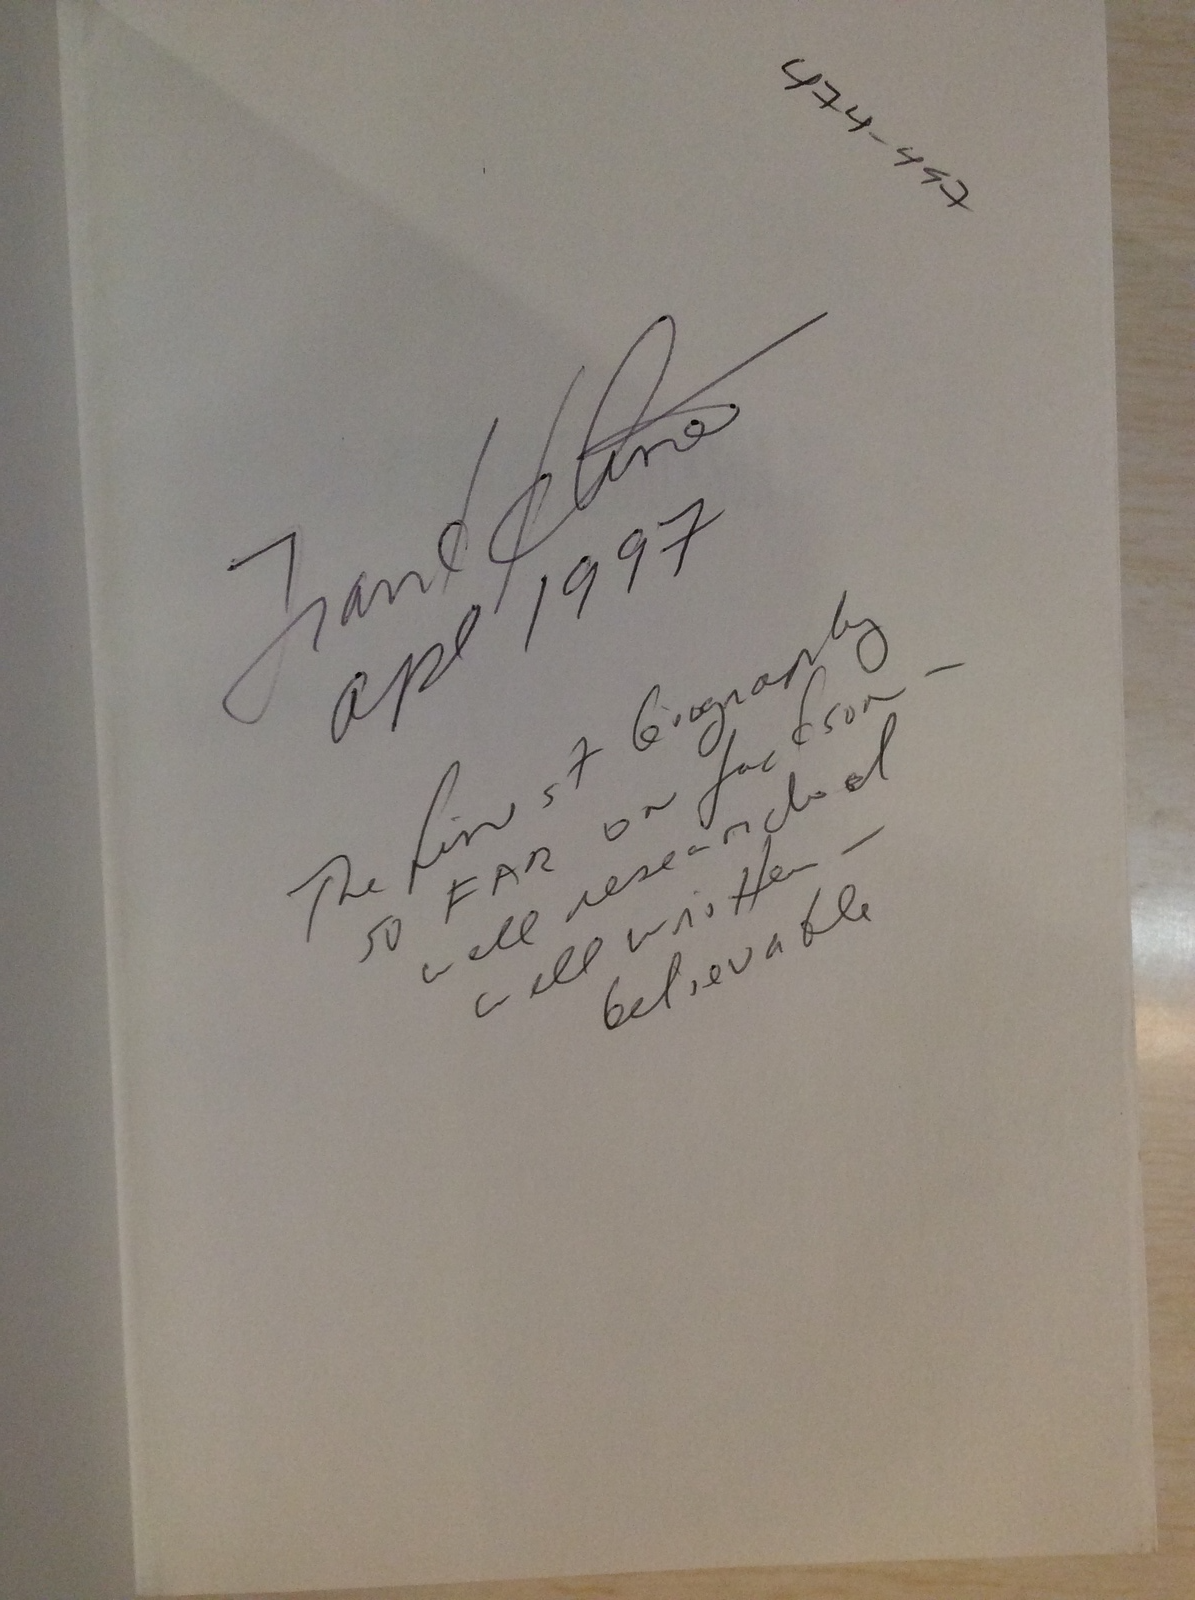 474-497
Frank
Apl 1997
The finest Biography
so FAR on Jackson -
well researched
well written -
believable